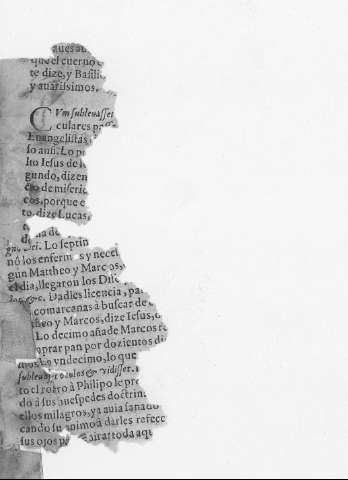 que el cuerno
te dize, y Basili
y auarissimos.
CVm subleuasset
culares
Euangelistas
so aun. Lo
ho Iesus de
gundo, dizen
de miseric
cos, porque e
to, dize Lucas,
de
Dei. Lo septin
nò los enfermos y necel
gun Mattheo y Marcos,
el dia, llegaron los Disc
&c. Dadles licencia, pa
comarcanas à buscar de
theo y Marcos, dize Iesus,
Lo decimo añade Marcos
prar pan por dozientos di
Lo vndecimo, lo que
subleuatis oculos & vidisset
to el rostro à Philipo le pre
dò à sus huespedes doctrin
ellos milagros, ya auia sanado
cando su animo à darles refecc
sus ojos toda aqu